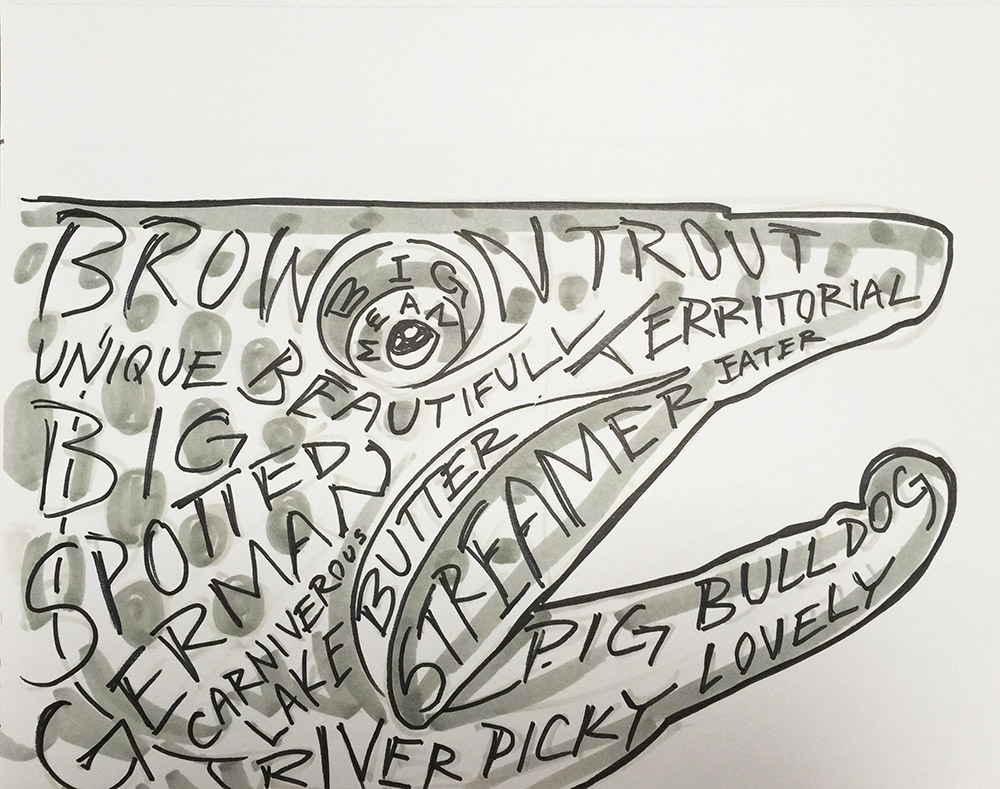 BROWN TROUT
BIG
MEAN
UNIQUE BEAUTIFUL TERRITORIAL
EATER
BIG
SPOTTED
GERMAN
CARNIVEROUS
LAKE
BUTTER
STREAMER
PIG BULLDOG
LOVELY
RIVER PICKY